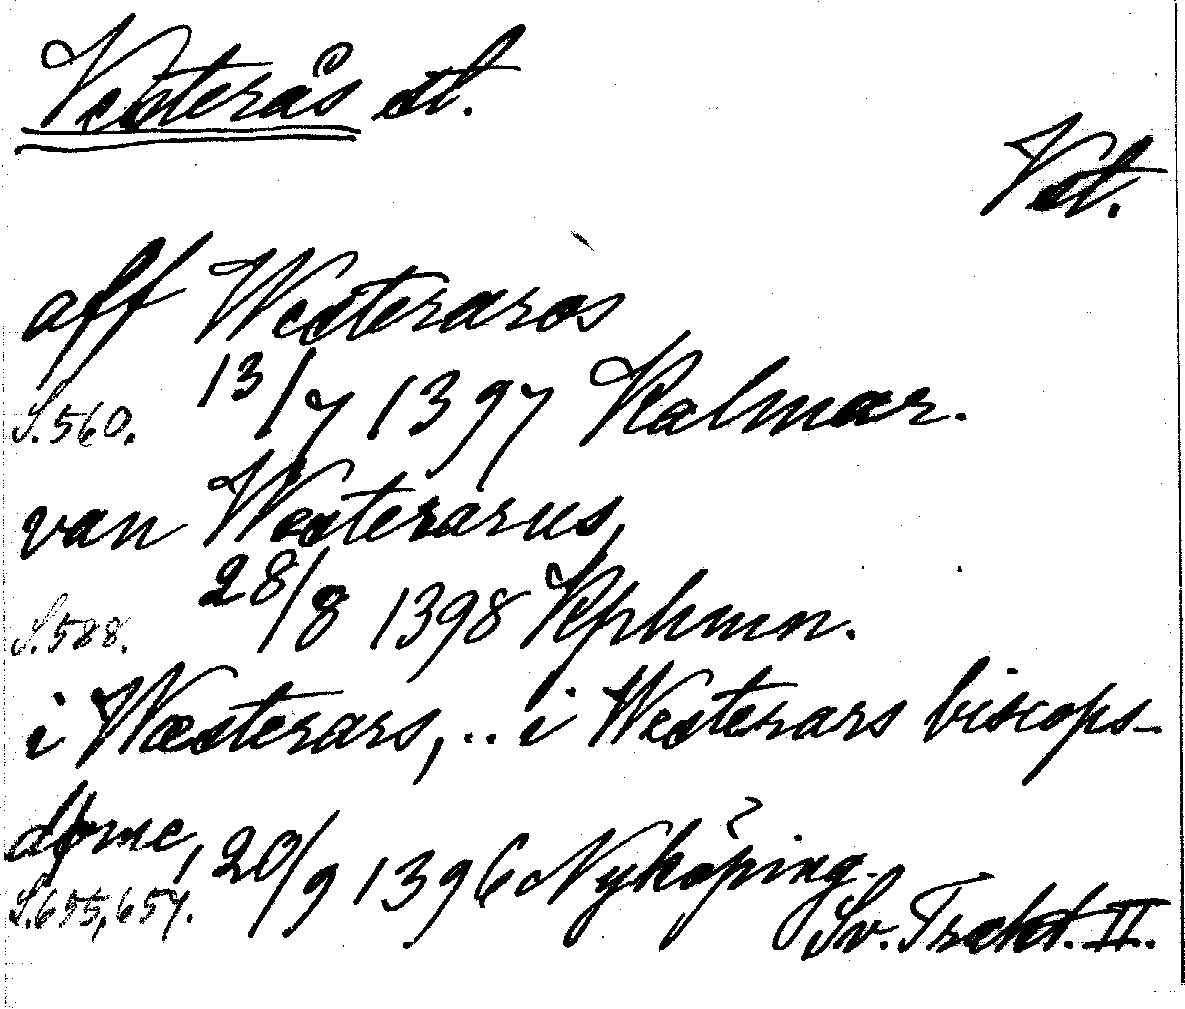 Västerås st.
Vst.
aff Westeraros
S. 560. 13/7 1397 Kalmar.
van Westerarus,
S. 588. 28/8 1398 Kphmn.
i Wæsterars, .. i Westerars biscops-
døme, 20/9 1396 Nyköping.
S. 655, 657. Sv. Trakt. II.